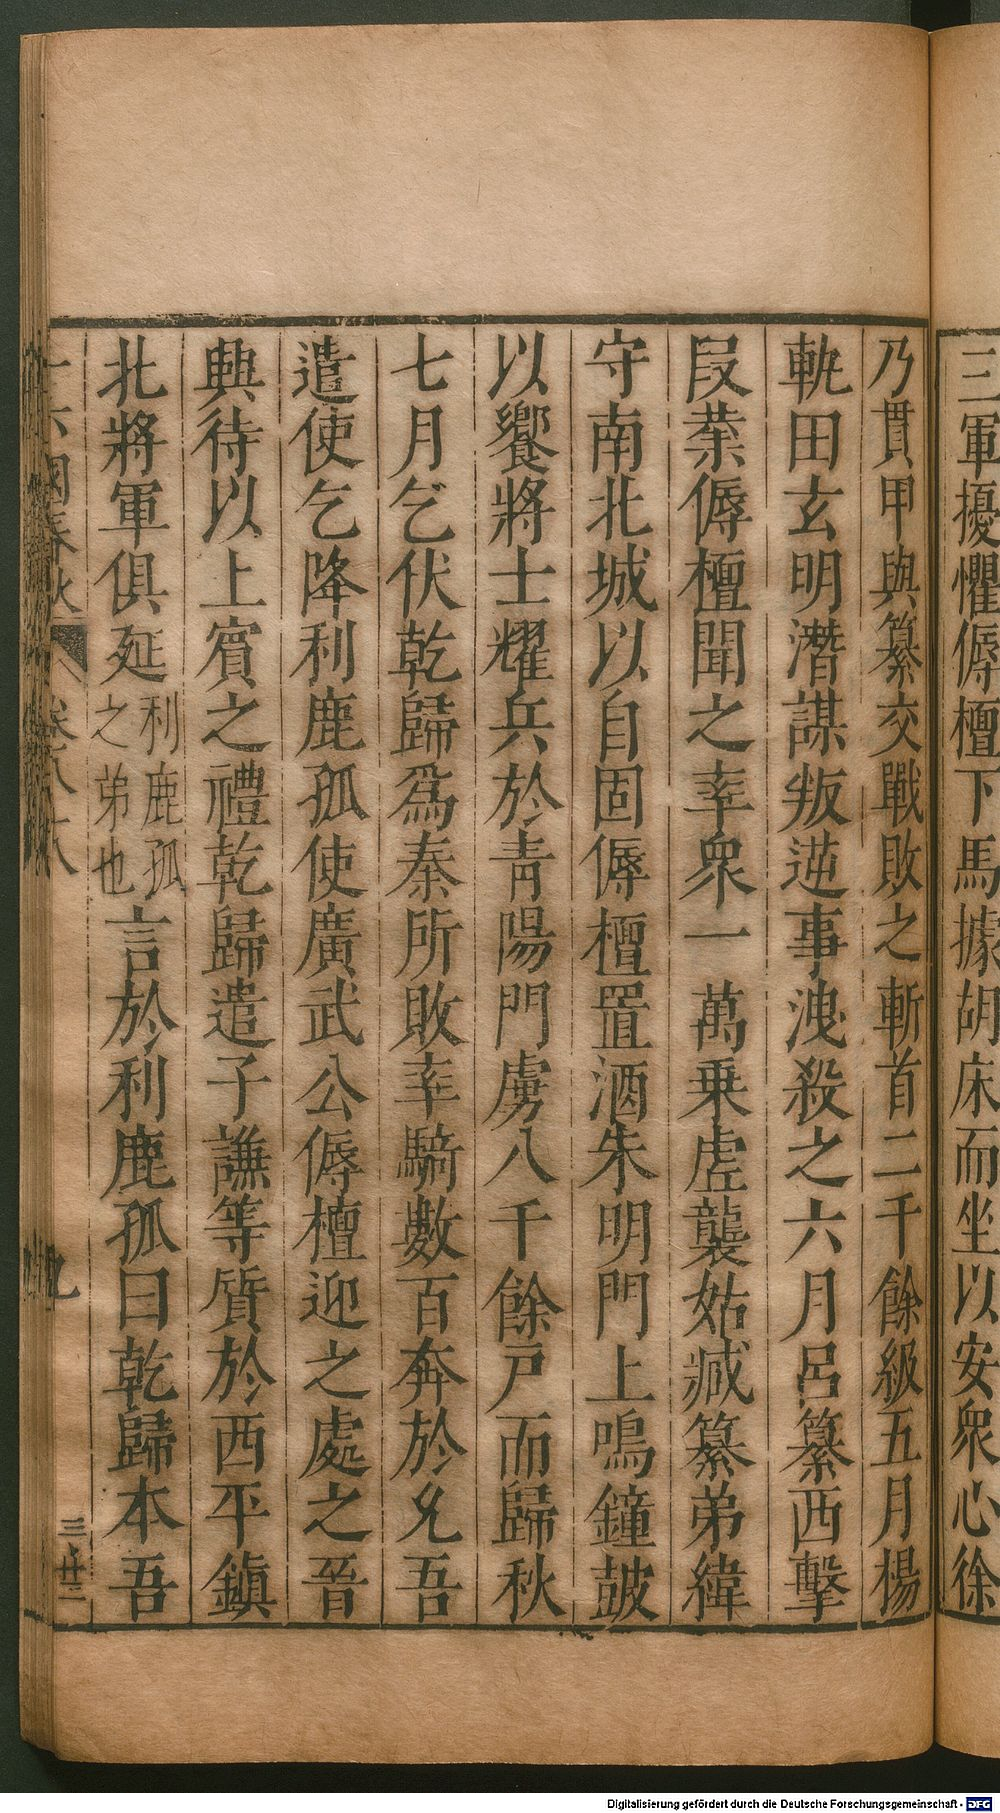 三軍擾懼傉檀下馬據胡床而坐以安衆心徐
乃貫甲與纂交戰敗之斬首二千餘級五月楊
軌田玄明潛謀叛逆事洩殺之六月呂纂西擊
叚業傉檀聞之率衆一萬乗虗襲姑臧纂弟緯
守南北城以自固傉檀置酒朱明門上鳴鐘皷
以饗將士耀兵於靑陽門虜八千餘戸而歸秋
七月乞伏乾歸爲秦所敗率騎數百奔於允吾
遣使乞降利鹿孤使廣武公傉檀迎之處之晉
興待以上賓之禮乾歸遣子謙等質於西平鎭
北將軍俱延利鹿孤之弟也言於利鹿孤曰乾歸本吾
十六國春秋 卷八十八 九 三廿三
Digitalisierung gefördert durch die Deutsche Forschungsgemeinschaft - DFG